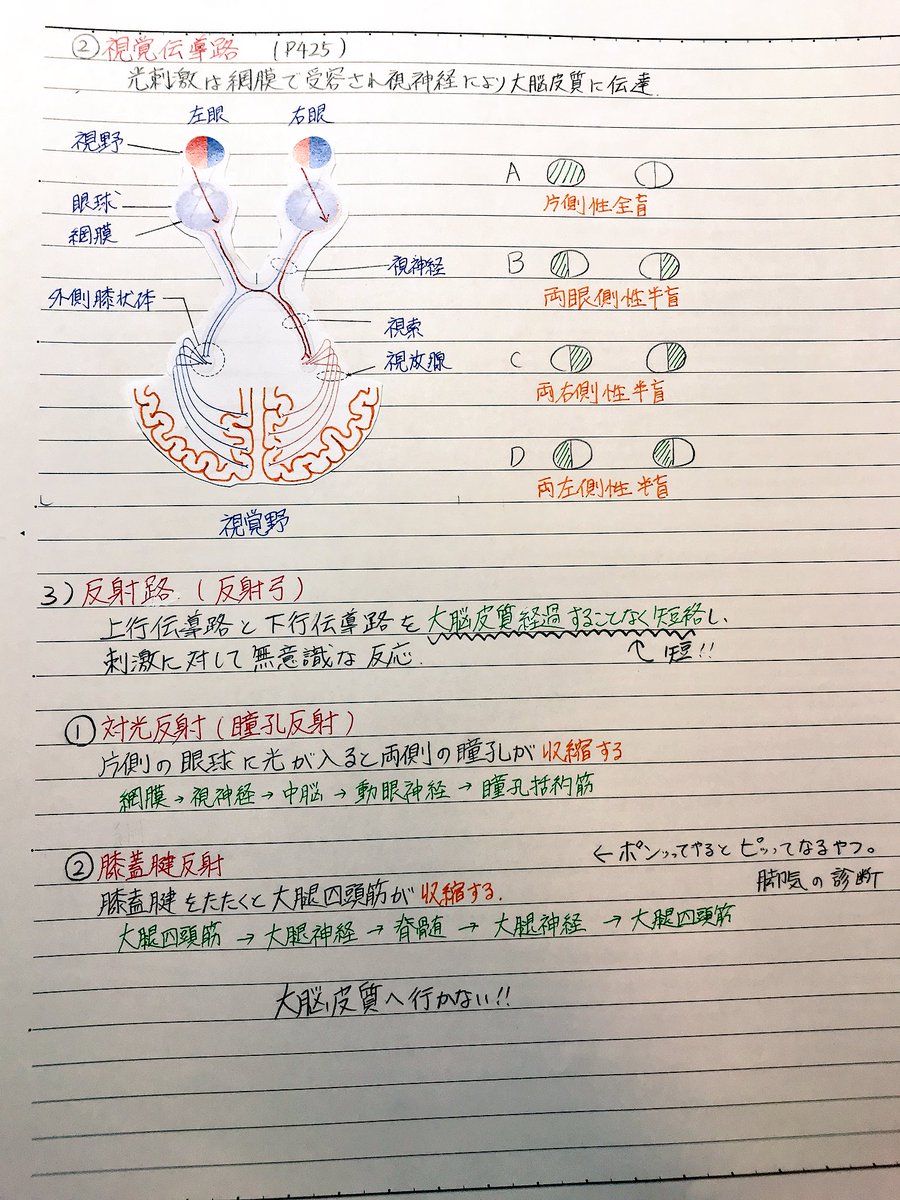 ② 視覚伝導路 (P425)
光刺激は網膜で受容され視神経により大脳皮質に伝達.
左眼 右眼
視野
眼球
網膜
視神経
外側膝状体
視索
視放線
視覚野
A
片側性全盲
B
両眼側性半盲
C
両右側性半盲
D
両左側性半盲
3) 反射路 (反射弓)
上行伝導路と下行伝導路を大脳皮質経過することなく短絡し、
刺激に対して無意識な反応.
↑短!!
① 対光反射(瞳孔反射)
片側の眼球に光が入ると両側の瞳孔が収縮する
網膜→視神経→中脳→動眼神経→瞳孔括約筋
② 膝蓋腱反射
←ポンッってやるとピッってなるやつ。
脚気の診断
膝蓋腱をたたくと大腿四頭筋が収縮する.
大腿四頭筋→大腿神経→脊髄→大腿神経→大腿四頭筋
大脳皮質へ行かない!!